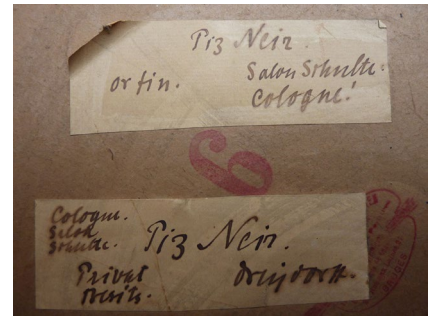 Piz Neir
or fin.
Salon Schulte.
Cologne!
6
Cologne.
Salon
Schulte.
Piz Neir.
Privat